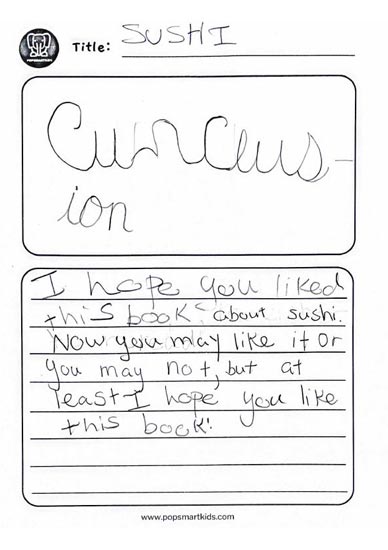 POPSMARTKIDS
Title: SUSHI
Cunclus-
ion
I hope you liked
this book about sushi.
Now you may like it or
you may not, but at
least I hope you like
this book!
www.popsmartkids.com